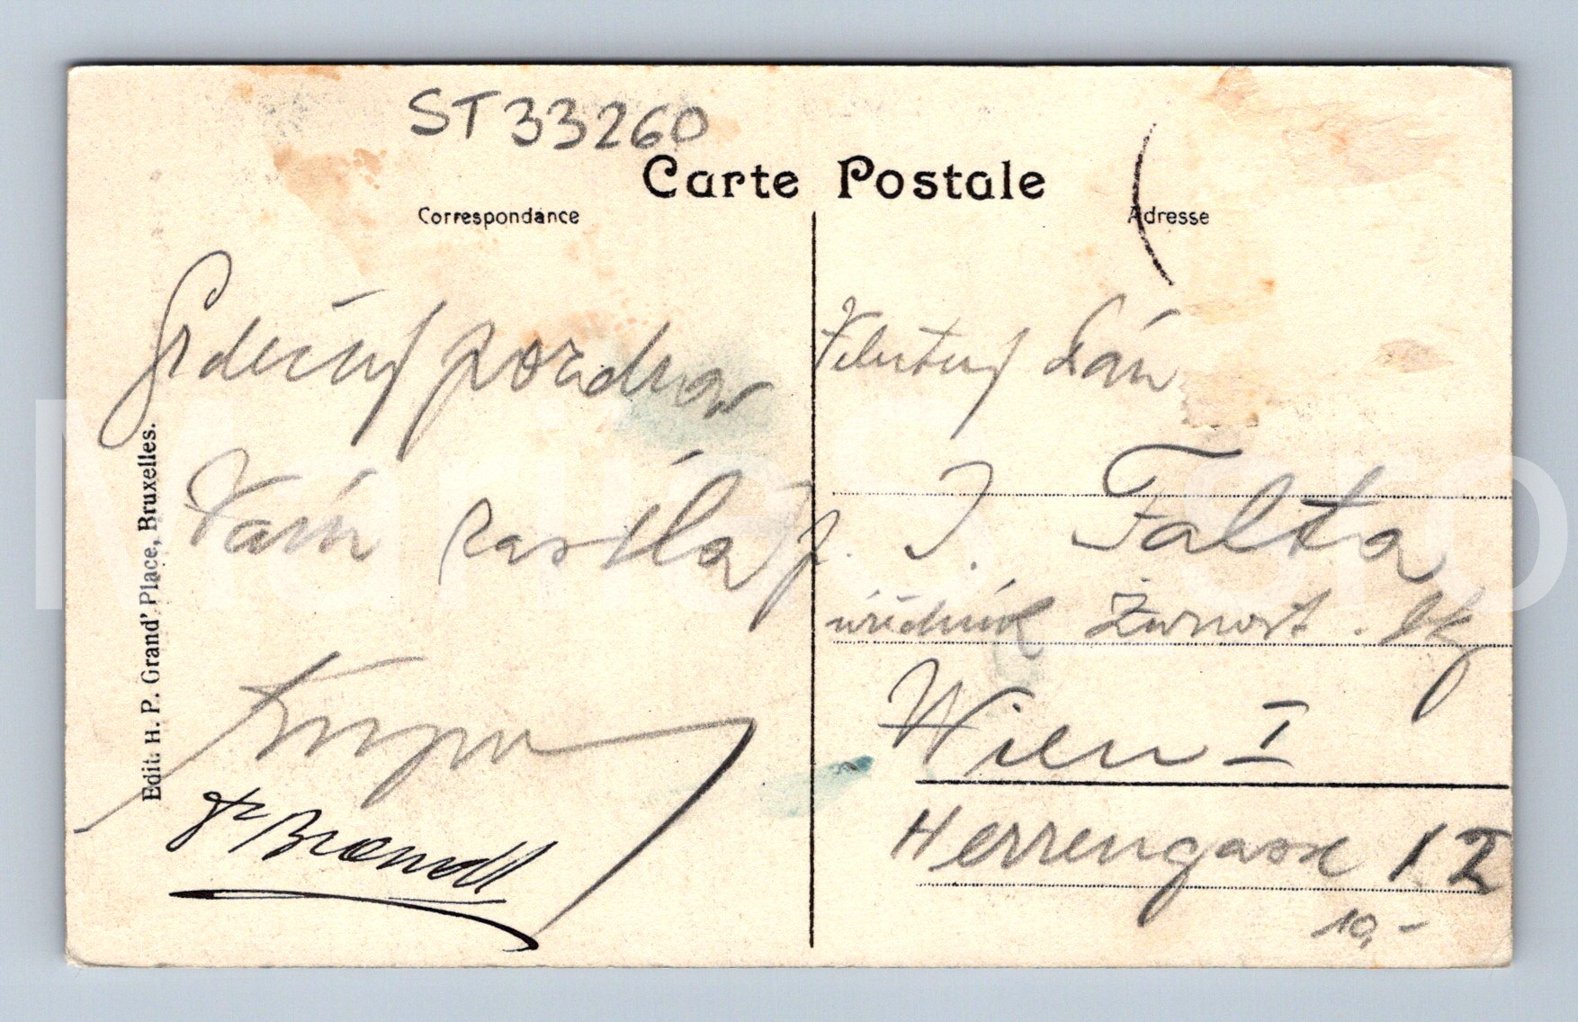 ST33260
Carte Postale
Correspondance
Adresse
Srdečný pozdrav
Vám zasílá
Fr Brandl
Edit. H. P. Grand' Place, Bruxelles.
Velectěný Pán
J. Falta
úředník Živnost.
Wien I
Herrengasse 12
10,-